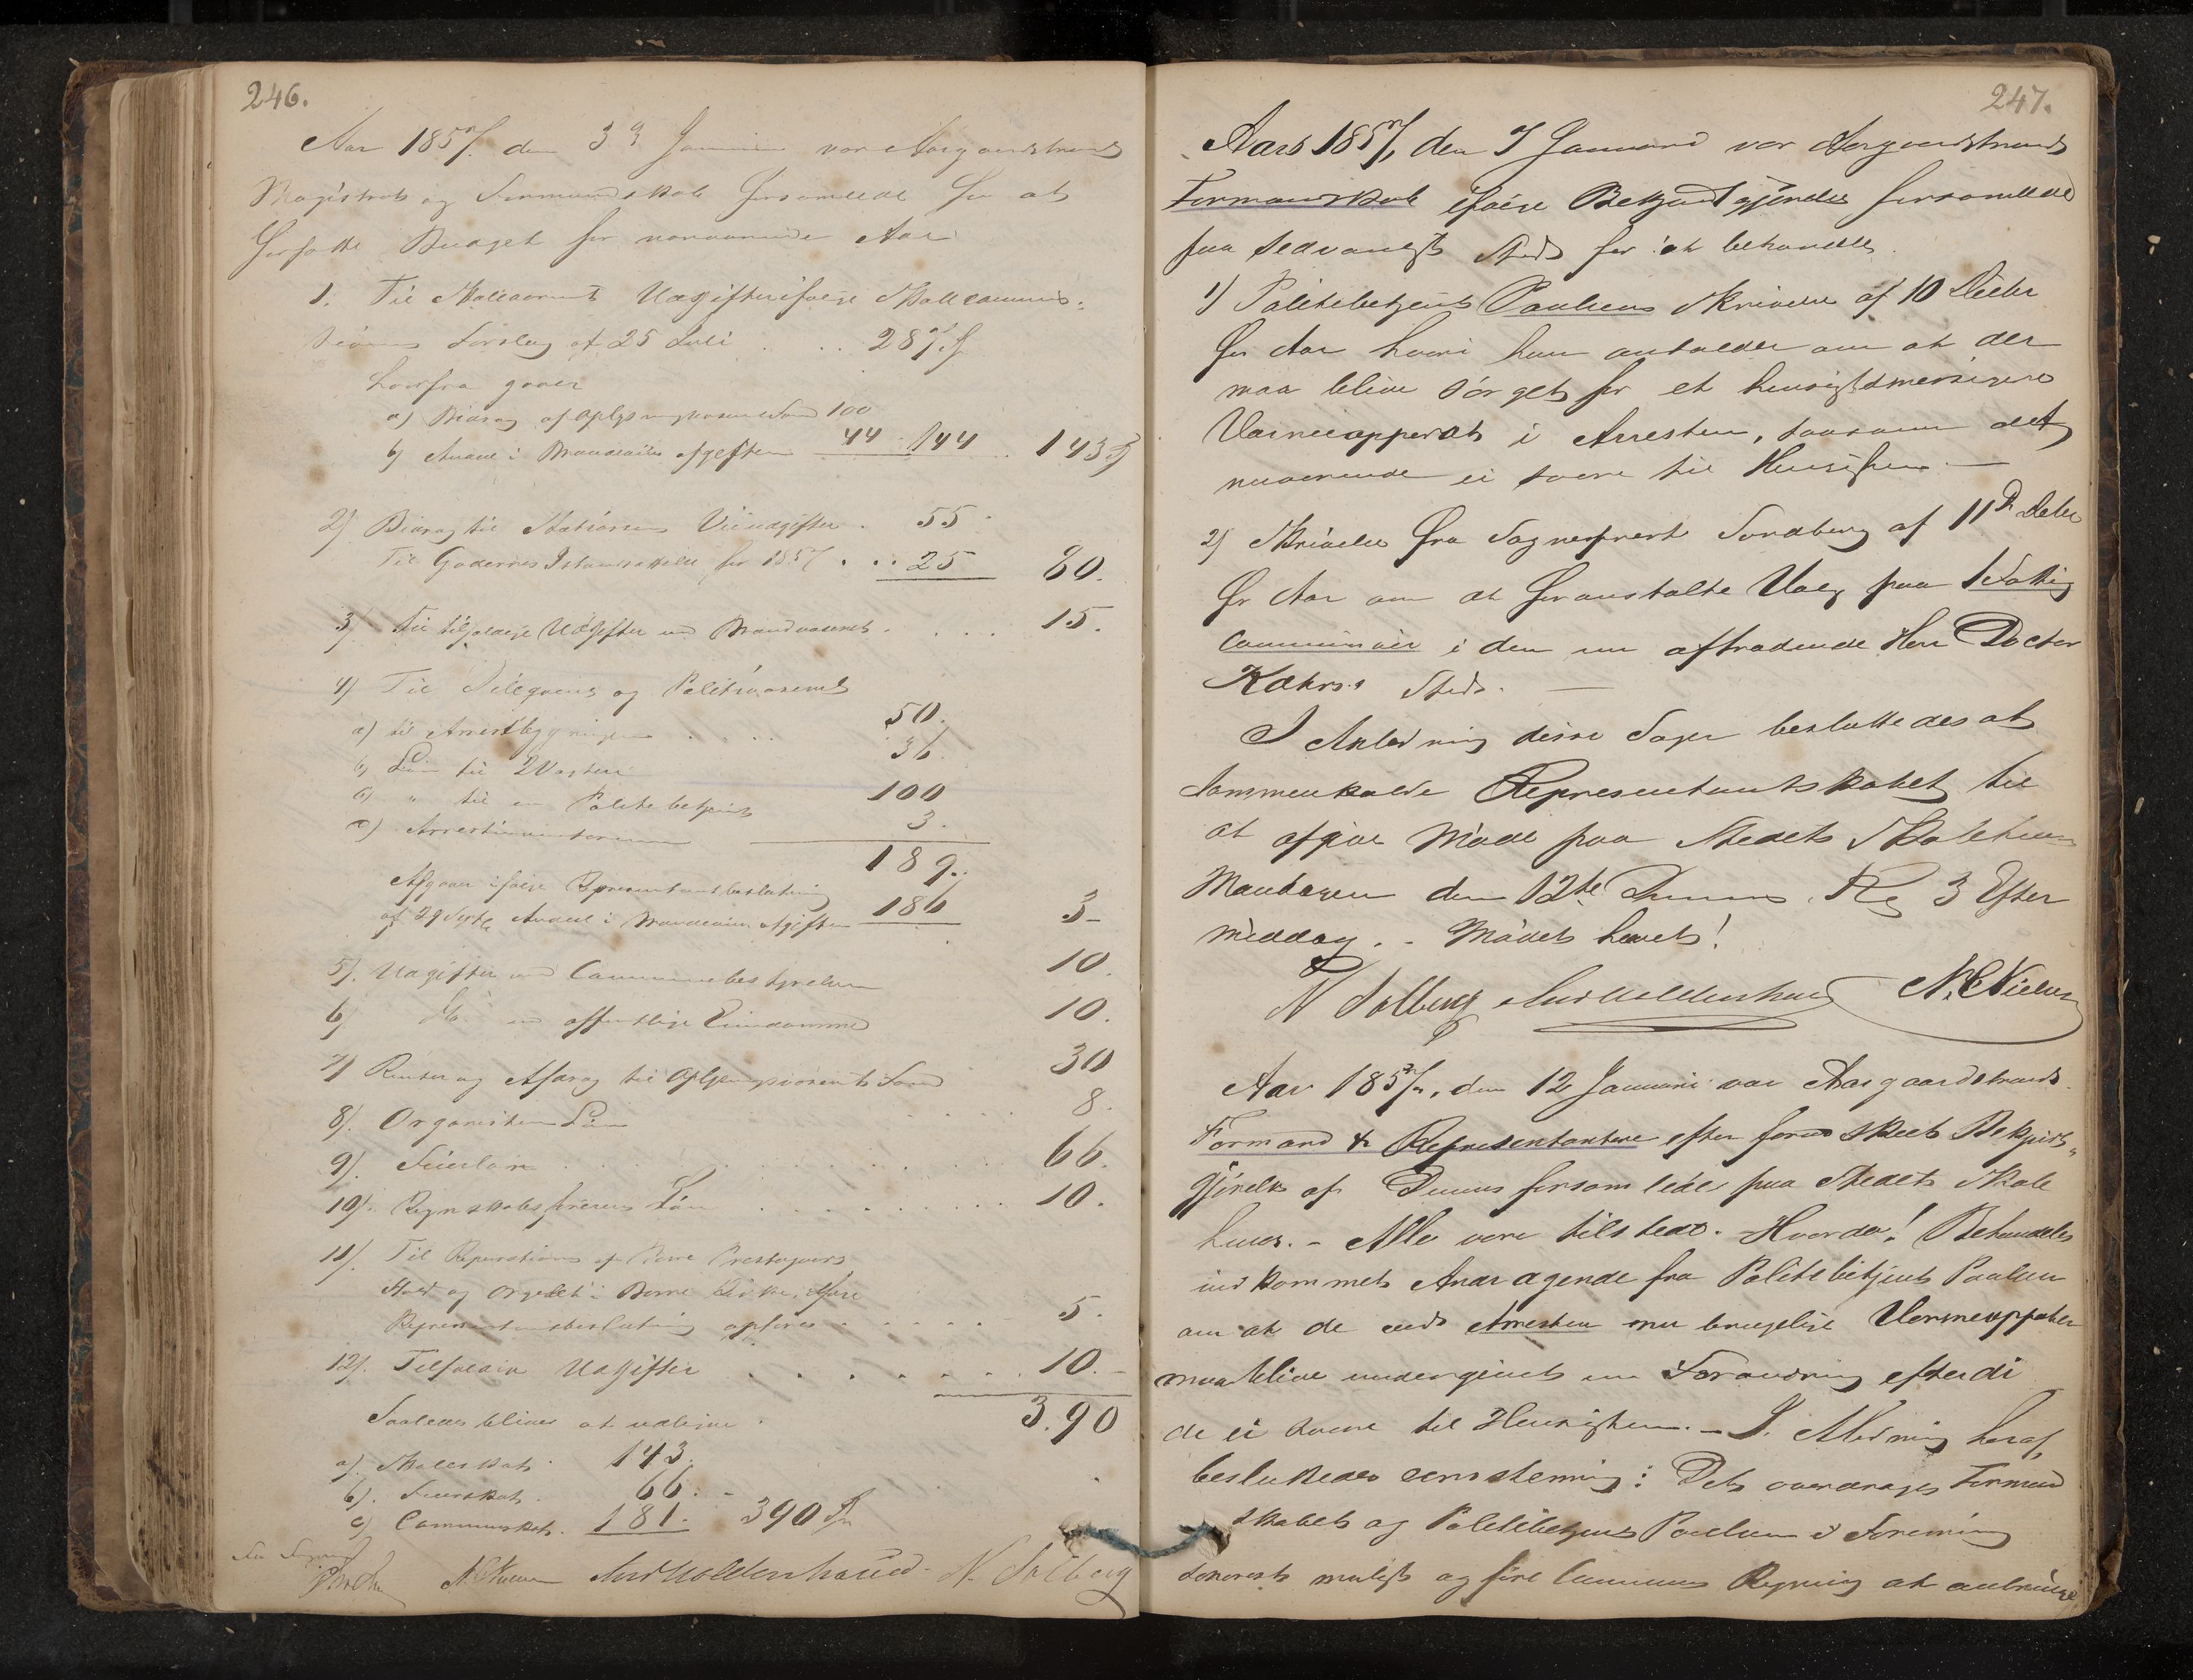 246.
Aar 1857. den 3d Januar var Aasgaardstrands
Magistrat og Formandskab forsamlede for at
forfatte Budget for nærværende Aar
1. Til Skolevæsenets Udgifter ifølge Skolecommis-
sionens Forslag af 25 Juli . . . 287
hvorfra gaaer
a) Bidrag af Oplysningsvæsenets Fond 100
b) Andeel i Brændeviins afgiften 44 . 144 . 143
2) Bidrag til Veiudgifter . 55 .
Til Gadernes Istandsættelse for 1857 . . . 25 80.
3) Til tilfældige Udgifter ved Brandvæsenet . . . . 15.
4) Til og Politivæsenet
a) til Arrestbygningen . . . . 50.
b) Løn til 2 Vægtere 36.
c) " til en Politebetjent 100
d) 3.
189.
Afgaaer ifølge Representantbeslutning
af 29 Septbr Andeel i Brændeviins Afgiften 186 3-
5). Udgifter ved Communebestyrelsen 10.
6) Do ved offentlige Eiendomme 10.
7) Renter og Afdrag til Oplysningsvæsenets Fond 30
8). Organisten Løn . . . . 8.
9). Feierløn . . . . . . . . 66.
10). Regnskabsførerens Løn . . . . . . . . 10.
11). Til Reparation af Borre Prestegaard
og Orgelet i Borre Kirke, ifølge
Representantbeslutning opføres . . . . . 5.
12). Tilfældige Udgifter . . . . . . . 10.-
Saaledes bliver at udligne . 390
a). Skoleskat . 143.
b). Feierskat . 66. -
c) Communeskat . 181. 390
N. Nielsen And Holdenshaued - N. Solberg
247.
Aars 1857, den 7 Januar var Aasgaardstrands
Formandskab ifølge Bekjendtgjørelse forsamlede
paa sedvanligt Sted for at behandle
1) Politebetjent Paulsens Skrivelse af 10 Decbr
f. Aar hvori han anholder om at der
maa blive sørget for et hensigtsmessigere
Varmeapperat i Arresten, saasom det
nuværende ei svare til Hensigten. —
2) Skrivelse fra Sogneprest Sondberg af 11te Decbr
f. Aar om at foranstalte Valg paa 1 Fattig
Commisair i den nu aftrædende Herr Doctor
Kæhrs's Sted. —
I Anledning disse Sager besluttedes at
sammenkalde Representantskabet til
at afgive Møde paa Stedets Skolehuus
Mandagen den 12te Dennes Kl 3 Efter
middag. - Mødet hævet!
N Solberg And Holdenshaued N. Nielsen
Aar 1857., den 12 Januar var Aasgaardstrands
Formænd & Representantere efter forud skeet Bekjendt-
gjørelse af Dennes forsamlede paa Stedets Skole
huus. - Alle vare tilstede. Hvorda! Behandles
indkommet Andragende fra Politebetjent Paulsen
om at de ved Arresten nu brugelige Varmeapperater
maa blive undergivet en Forandring efterdi
de ei svare til Hensigten. - I Anledning heraf,
besluttedes eensstemmig: Det overdrages Formand
skabet og Politebetjent Paulsen i Forening
snarest muligt og for Communens Regning at anbringe